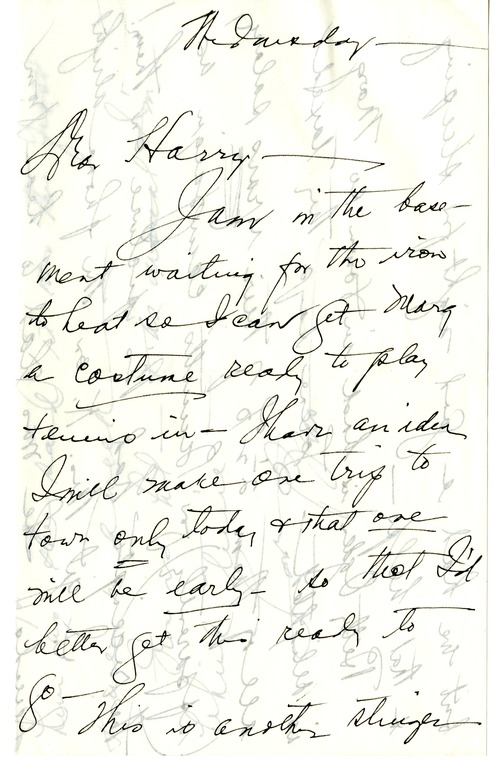 Wednesday —
Dear Harry —
I am in the base-
ment waiting for the iron
to heat so I can get Mary
a costume ready to play
tennis in — I have an idea
I will make one trip to
town only today & that one
will be early — so that I'd
better get this ready to
go — This is another stinger